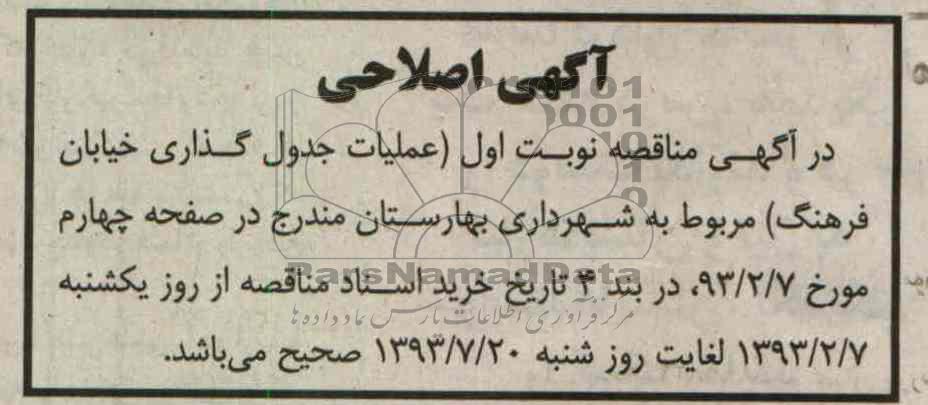 آگهی اصلاحی
در آگهی مناقصه نوبت اول (عملیات جدول گذاری خیابان
فرهنگ) مربوط به شهرداری بهارستان مندرج در صفحه چهارم
مورخ ۹۳/۲/۷، در بند ۴ تاریخ خرید اسناد مناقصه از روز یکشنبه
۱۳۹۳/۲/۷ لغایت روز شنبه ۱۳۹۳/۷/۲۰ صحیح می‌باشد.
ParsNamadData
مرکز فرآوری اطلاعات پارس نماد داده ها